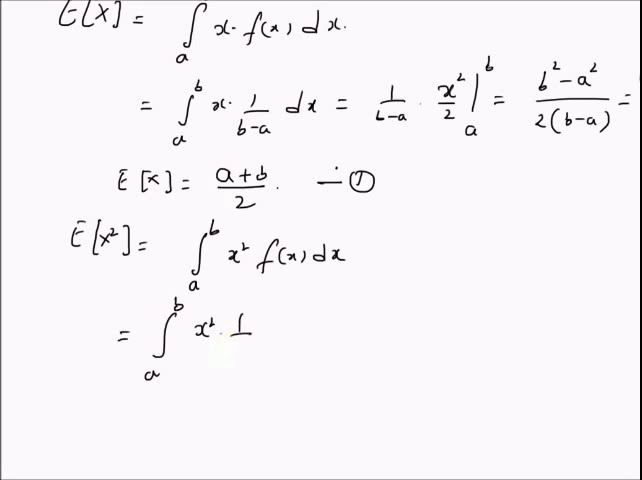 E[X] = ∫ₐ x. f(x) dx.
= ∫ₐᵇ x. 1/(b-a) dx = 1/(b-a) . x²/2 |ₐᵇ = (b² - a²)/(2(b-a)) =
E[X] = (a+b)/2. — ①
E[X²] = ∫ₐᵇ x² f(x) dx
= ∫ₐᵇ x² . 1/